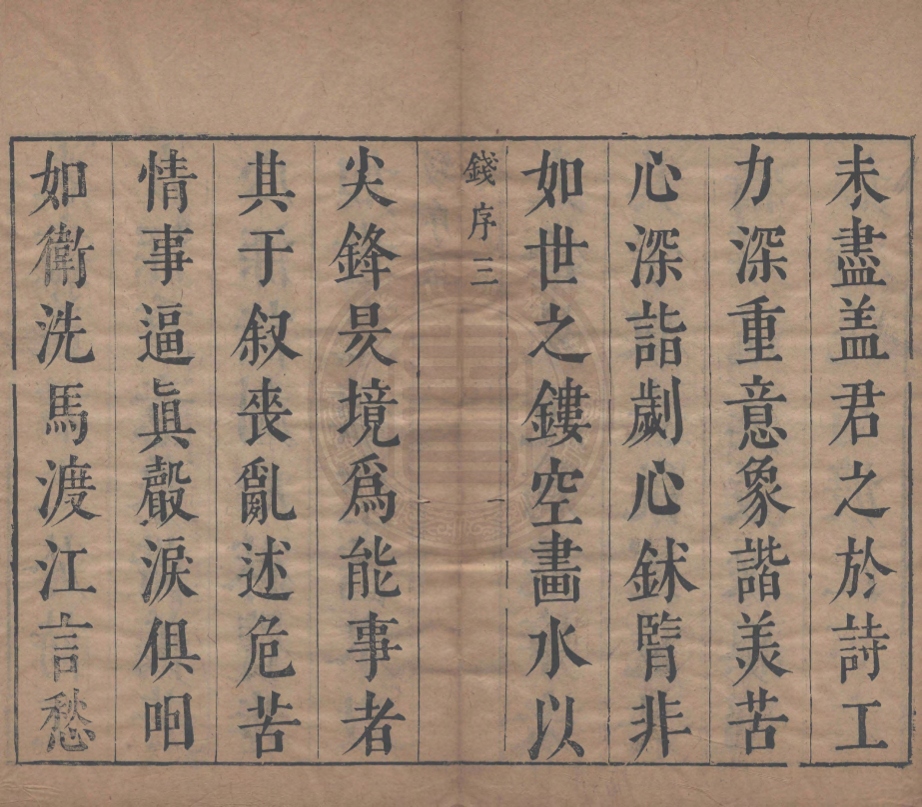 未盡盖君之於詩工
力深重意象諧美苦
心深詣劌心鉥腎非
如世之鏤空畫水以
錢序三
一
尖鋒炅境爲能事者
其于叙喪亂述危苦
情事逼眞聲淚俱咽
如衛洗馬渡江言愁